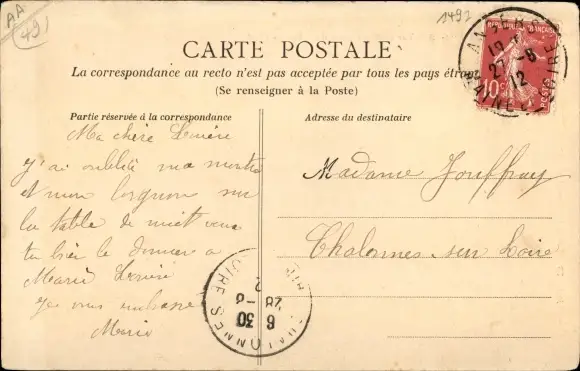 AA
49
1492
CARTE POSTALE
La correspondance au recto n'est pas acceptée par tous les pays étran
(Se renseigner à la Poste)
Partie réservée à la correspondance
Adresse du destinataire
Ma chère
J'ai oublié ma montre
et mon lorgnon sur
la table de nuit
tu bien le donner a
Marie
Je vous embrasse
Marie
Madame Jouffray
Chalonnes sur Loire
ANGERS
27-8
12
LOIRE
10c
POSTES
6 30
28-8